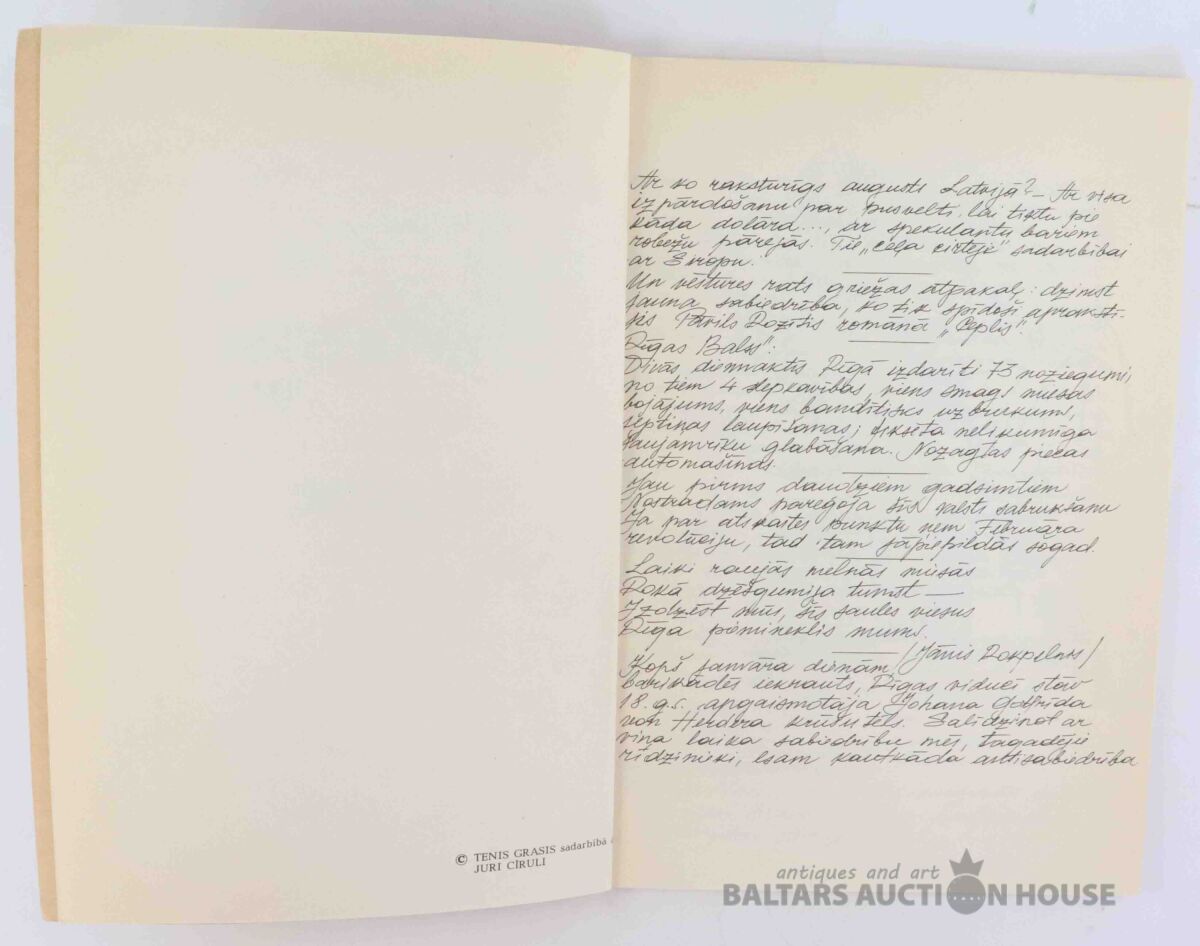 © TENIS GRASIS sadarbībā
JURI CĪRULI
Ar ko raksturīgs augusts Latvijā? — Ar visa
izpārdošanu par pusvelti, lai tiktu pie
kāda dolāra..., ar spekulantu bariem
robežu pārejās. Tie „ceļa cirtēji" sadarbībai
ar Eiropu.
Un vēstures rats griežas atpakaļ: dzimst
jauna sabiedrība, ko tik spīdoši aprakstī-
jis Pāvils Rozītis romānā „Ceplis".
„Rīgas Balss":
Divās diennaktīs Rīgā izdarīti 73 noziegumi,
no tiem 4 slepkavības, viens smags miesas
bojājums, viens bandītisks uzbrukums,
septiņas laupīšanas; fiksēta nelikumīga
šaujamrīku glabāšana. Nozagtas piecas
automašīnas.
Jau pirms daudziem gadsimtiem
Nostradams pareģoja šīs valsts sabrukšanu
Ja par atskaites punktu ņem Februāra
revolūciju, tad tam jāpiepildās šogad.
Laiki raujās melnās mūsās
Rokā dzēšgumija tumst —
Izdzēst mūs, šīs saules viesus
Rīga piemineklis mums.
(Jānis Rokpelnis)
Kopš janvāra dienām
barikādēs iekrauts, Rīgas viducī stāv
18. g.s. apgaismotāja Johana Gotfrīda
von Herdera krūšutēls. Salīdzinot ar
viņa laika sabiedrību mēs, tagadējie
rīdzinieki, esam kautkāda antisabiedrība
antiques and art
BALTARS AUCTION HOUSE